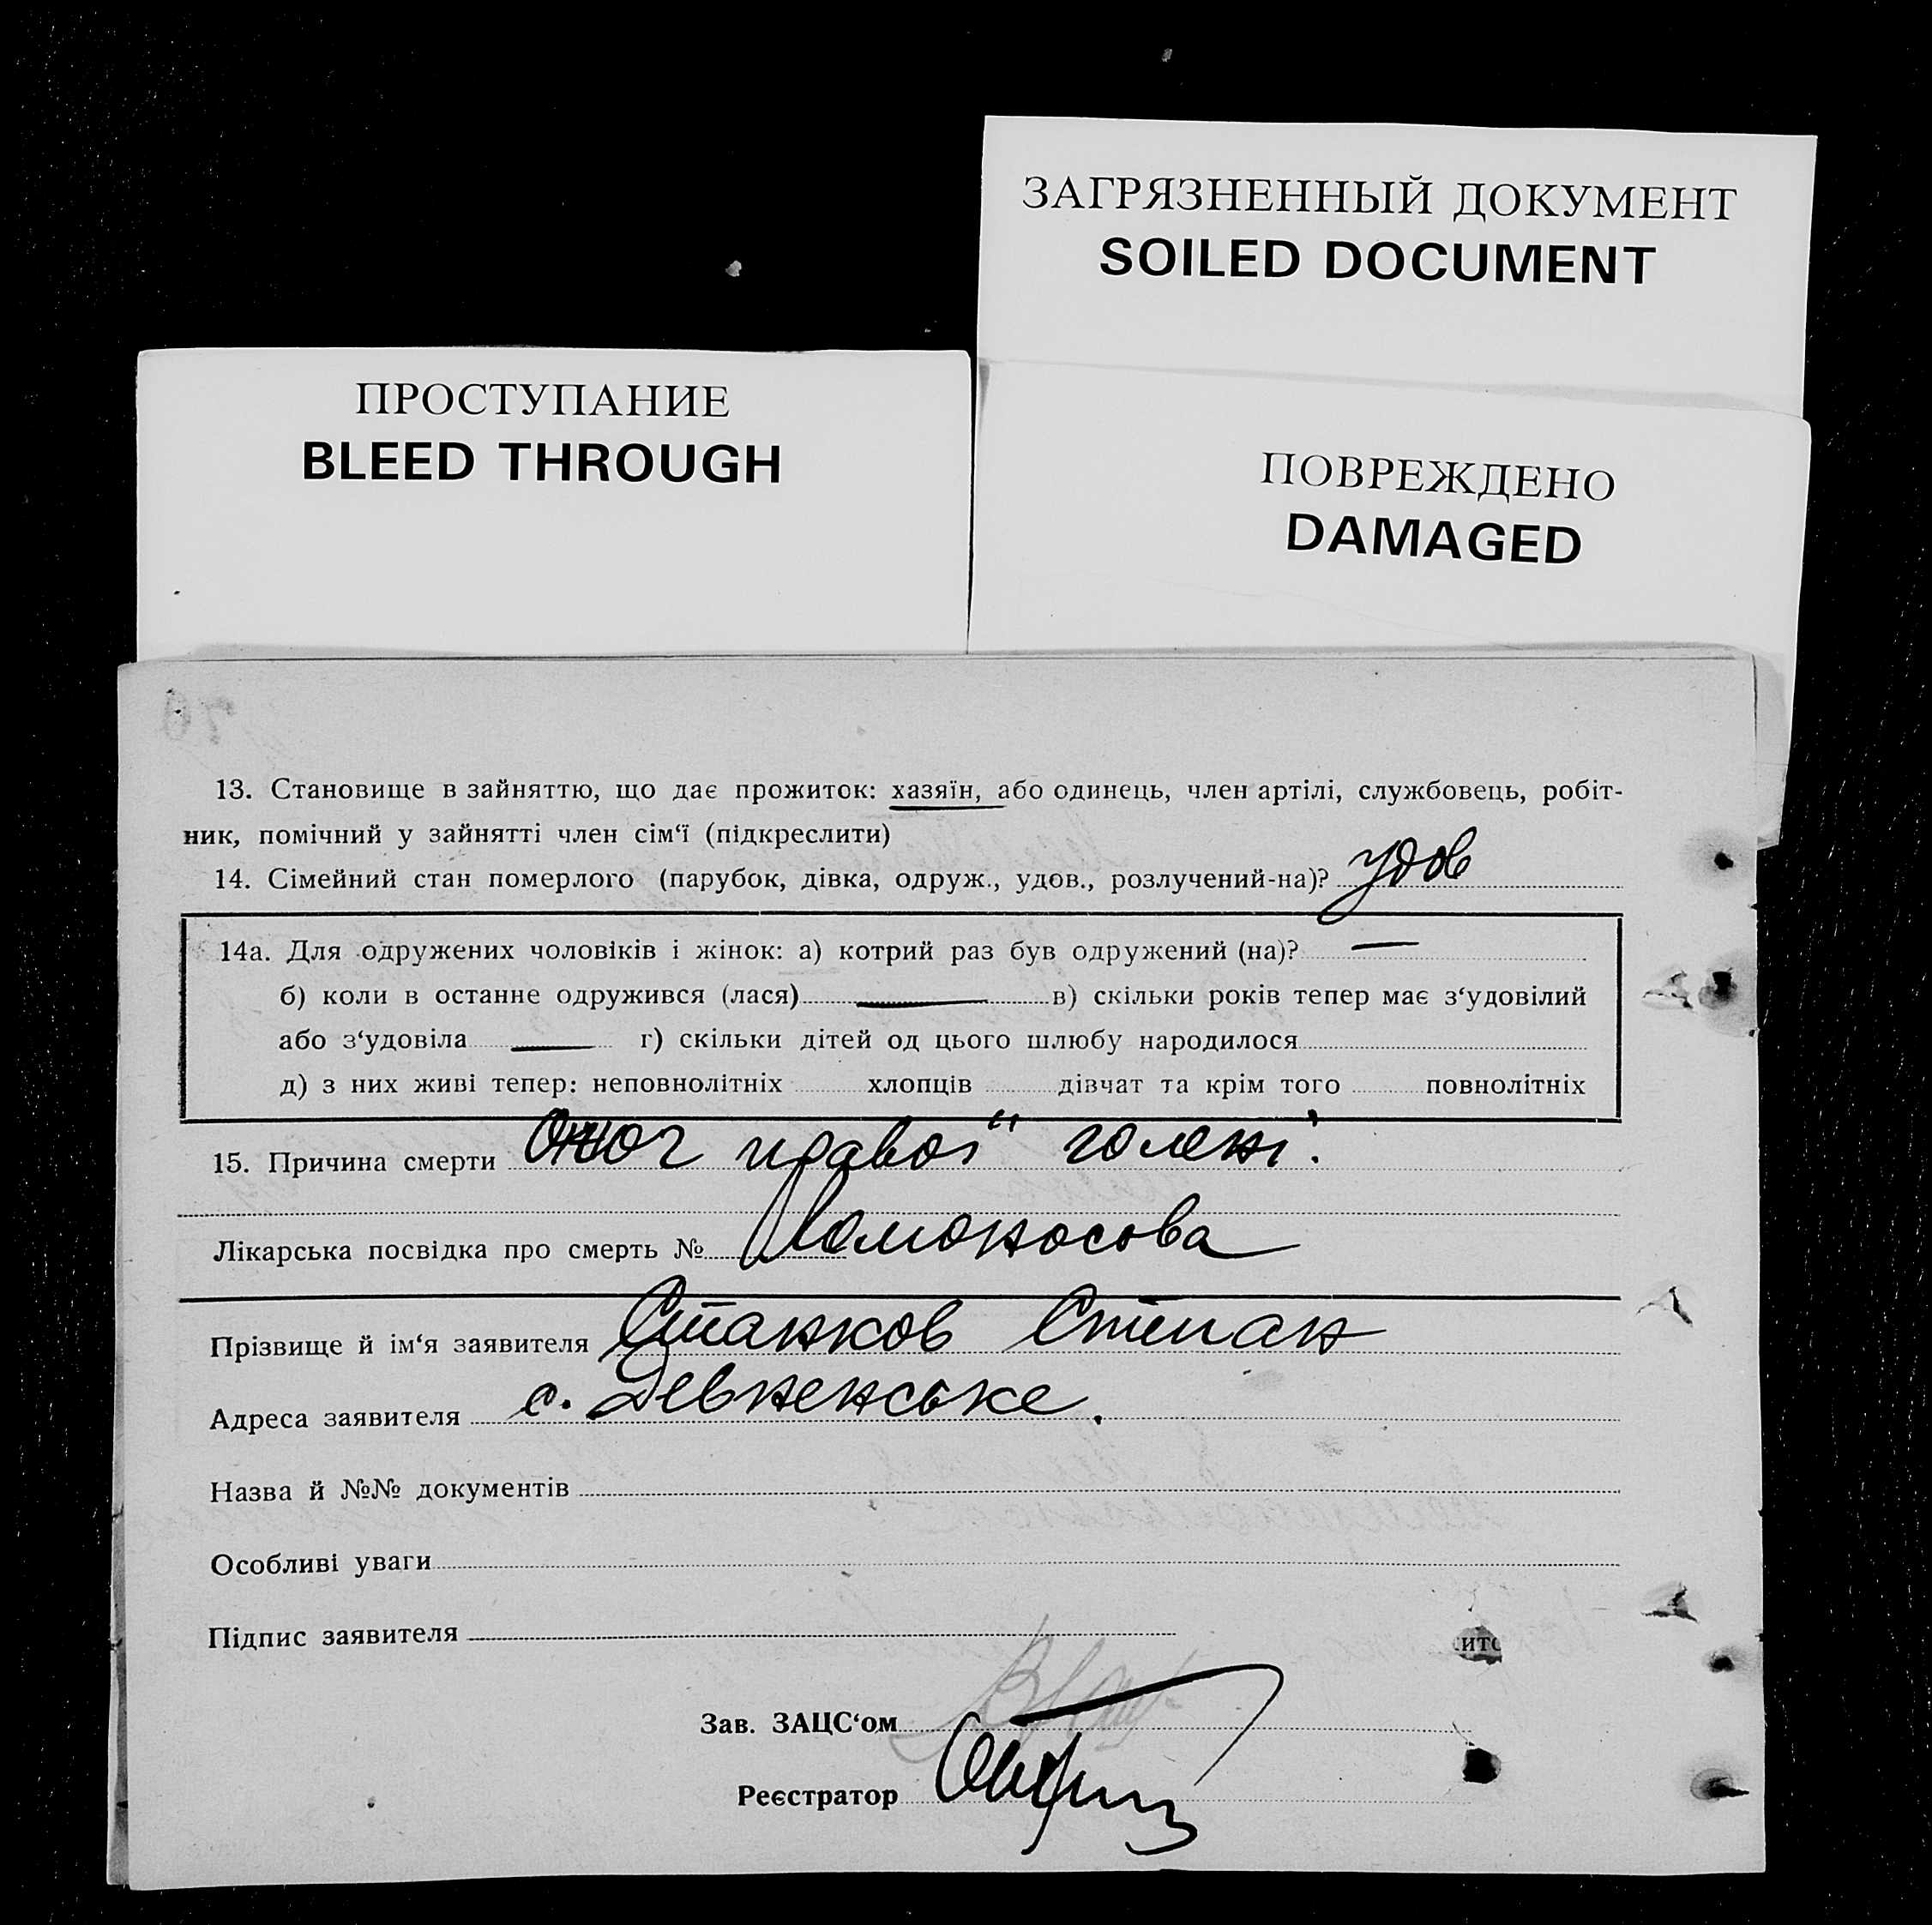 ЗАГРЯЗНЕННЫЙ ДОКУМЕНТ
SOILED DOCUMENT
ПРОСТУПАНИЕ
BLEED THROUGH
ПОВРЕЖДЕНО
DAMAGED
13. Становище в зайняттю, що дає прожиток: хазяїн, або одинець, член артілі, службовець, робіт-
ник, помічний у зайнятті член сім‘ї (підкреслити)
14. Сімейний стан померлого (парубок, дівка, одруж., удов., розлучений-на)? удов
14а. Для одружених чоловіків і жінок: а) котрий раз був одружений (на)? —
б) коли в останне одружився (лася) — в) скільки років тепер має з‘удовілий
або з‘удовіла — г) скільки дітей од цього шлюбу народилося
д) з них живі тепер: неповнолітніх хлопців дівчат та крім того повнолітніх
15. Причина смерти правої голені.
Лікарська посвідка про смерть № Ломоносова
Прізвище й ім‘я заявителя Станков Степан
Адреса заявителя с. Девненське.
Назва й №№ документів
Особливі уваги
Підпис заявителя
Зав. ЗАЦС‘ом
Реєстратор